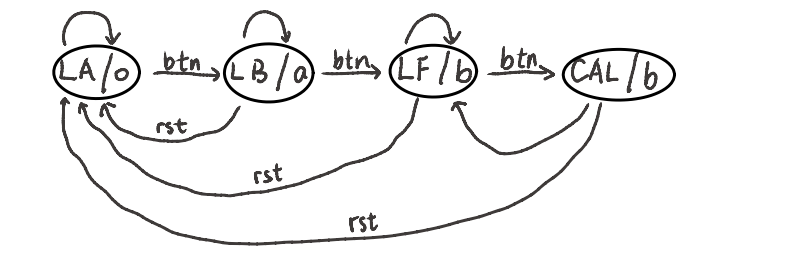 LA/0 btn LB/a btn LF/b btn CAL/b
rst
rst
rst